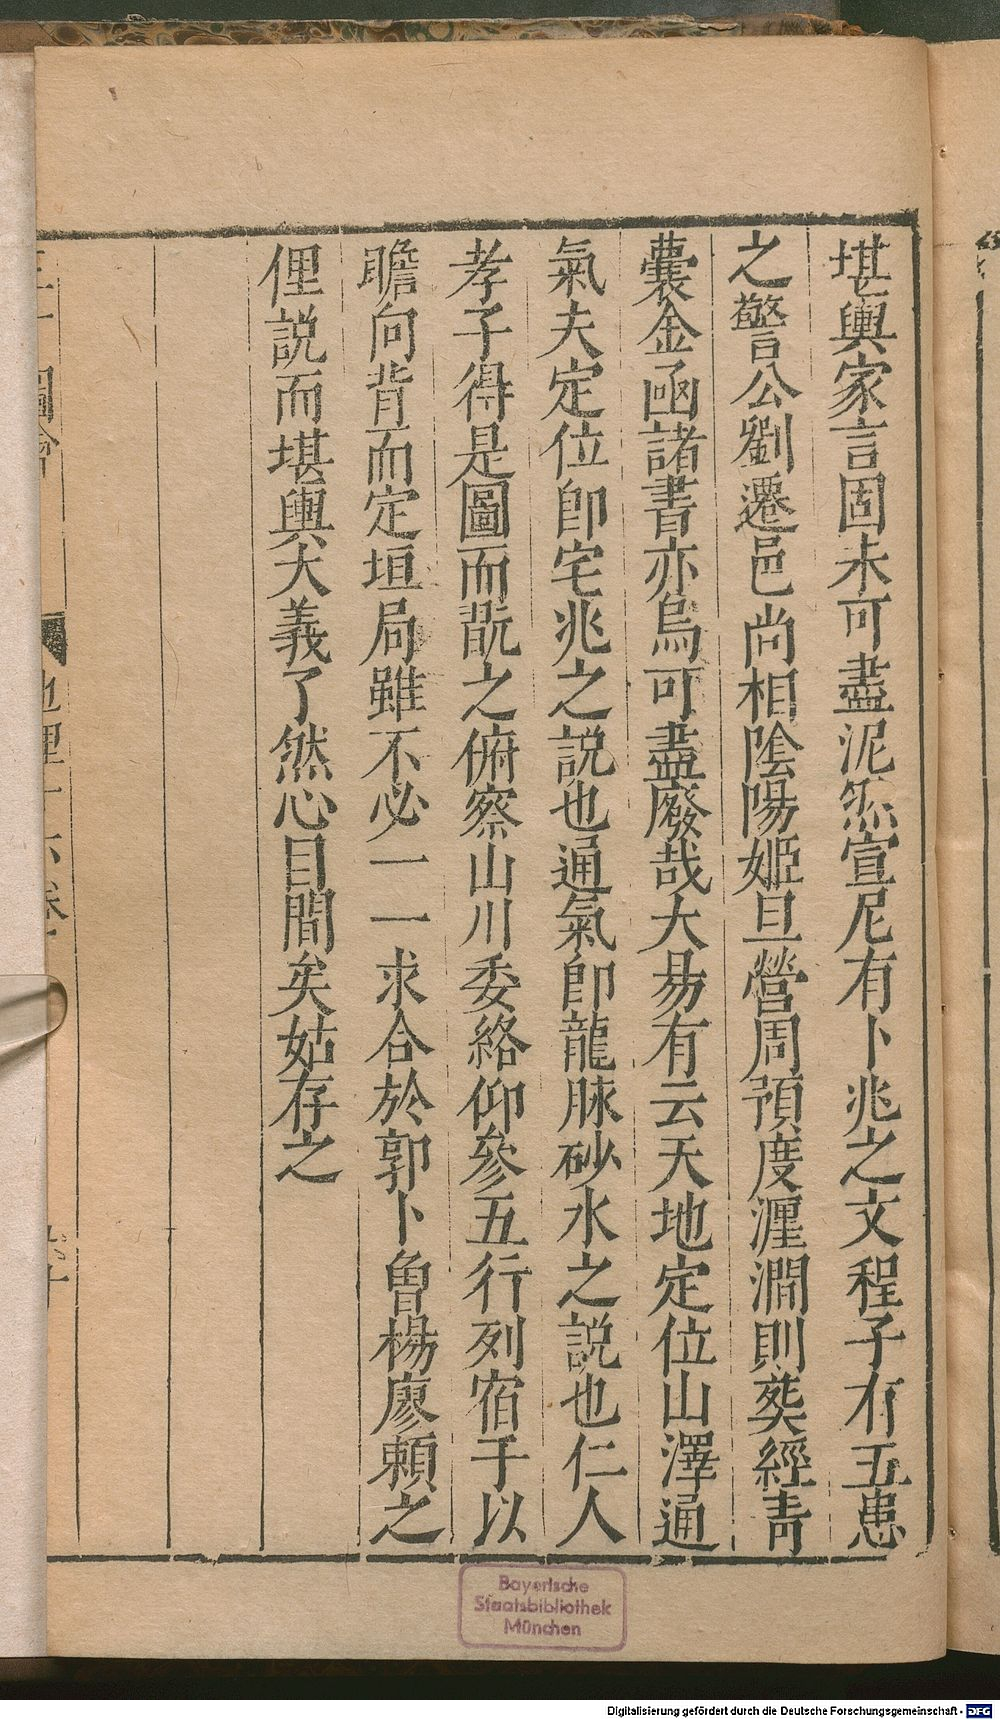 堪輿家言固未可盡泥然宣尼有卜兆之文程子有五患
之警公劉遷邑尚相陰陽姬旦營周預度瀍澗則葬經青
囊金函諸書亦烏可盡廢哉大易有云天地定位山澤通
氣夫定位卽宅兆之說也通氣卽龍脉砂水之說也仁人
孝子得是圖而翫之俯察山川委絡仰參五行列宿于以
瞻向背而定垣局雖不必一一求合於郭卜曾楊廖賴之
俚說而堪輿大義了然心目間矣姑存之
圖會
地理十六卷
Bayerische
Staatsbibliothek
München
Digitalisierung gefördert durch die Deutsche Forschungsgemeinschaft - DFG